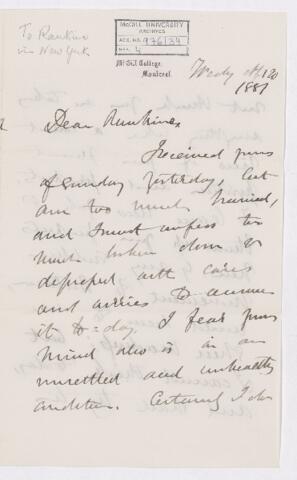 To Rankine
via New York
McGILL UNIVERSITY
ARCHIVES
ACC. NO. 976/34
REF. 4
McGill College,
Montreal.
Wedy
1881
Dear Rankine
Received yours
of Sunday yesterday, but
am too much hurried,
and I must confess too
much broken down &
depressed with cares
and worries to answer
it to-day. I fear your
mind also is in an
unsettled and unhealthy
condition. Certainly I do